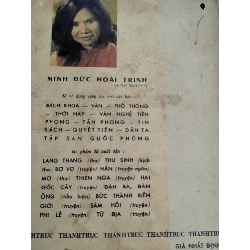 MINH ĐỨC HOÀI TRINH
BÁCH KHOA – VĂN – PHỔ THÔNG
– THỜI NAY – VĂN NGHỆ TIỀN
PHONG – TÂN PHONG – TIN
SÁCH – QUYẾT TIẾN – DÂN TA
TẬP SAN QUỐC PHÒNG
LANG THANG (thơ) THƯ SINH (kịch
thơ) BƠ VƠ (truyện) HẮN (truyện ngắn)
MƠ (thơ) THIÊN NGA (truyện) HAI
GỐC CÂY (truyện) ĐÀN BÀ, ĐÀN
ÔNG (tiểu luận) BỨC THÀNH BIÊN
GIỚI (truyện) SÁM HỐI (truyện)
PHI LÊ (truyện) TỬ ĐỊA (truyện)
THANHTRUC THANHTRUC THANHTRUC THANHTRUC
GIÁ NHẤT ĐỊNH